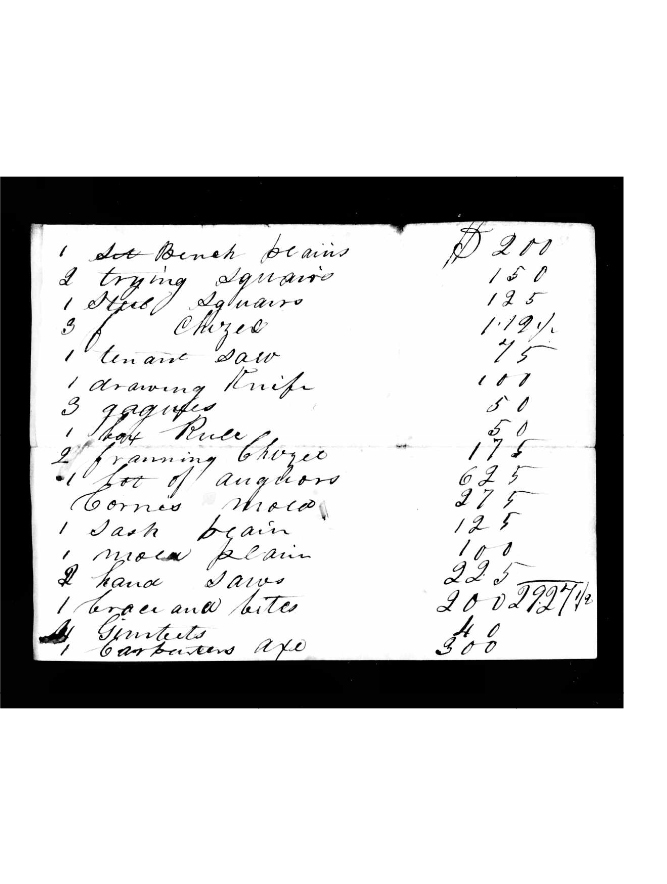 1 Set Bench plains $ 200
2 trying squairs 150
1 Steel squairs 125
3 f Chizel 1.12½
1 tenant saw 75
1 drawing Knife 100
3 gagues 50
1 box Rule 50
2 framning Chizel 175
1 Lot of auguors 625
Cornes mold 275
1 Sash plain 125
1 mold plain 100
2 hand saws 225
1 brace and bites 200 2927½
4 Gimlets 40
1 Carpenters axe 300